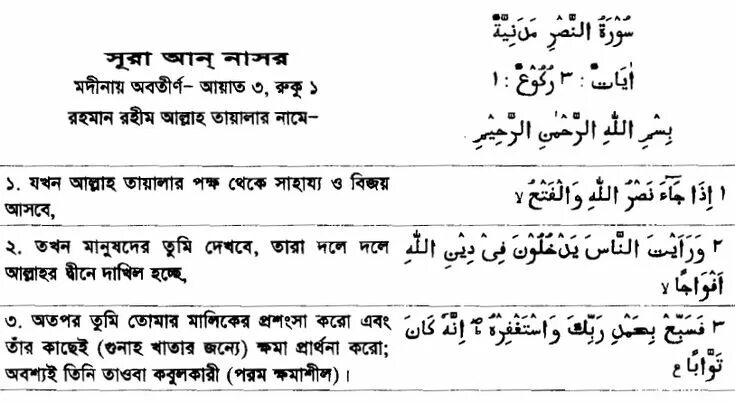 সূরা আন্ নাসর
মদীনায় অবতীর্ণ- আয়াত ৩, রুকু ১
রহমান রহীম আল্লাহ তায়ালার নামে-
سُوْرَةُ النَّصْرِ مَدَنِيَّةٌ
اٰيَاتٌ : ٣ رُكُوْعٌ : ١
بِسْمِ اللّٰهِ الرَّحْمٰنِ الرَّحِيْمِ
১. যখন আল্লাহ তায়ালার পক্ষ থেকে সাহায্য ও বিজয়
আসবে,
١ اِذَا جَآءَ نَصْرُ اللّٰهِ وَالْفَتْحُ ۙ
২. তখন মানুষদের তুমি দেখবে, তারা দলে দলে
আল্লাহর দ্বীনে দাখিল হচ্ছে,
٢ وَرَاَيْتَ النَّاسَ يَدْخُلُوْنَ فِيْ دِيْنِ اللّٰهِ
اَفْوَاجًا ۙ
৩. অতপর তুমি তোমার মালিকের প্রশংসা করো এবং
তাঁর কাছেই (গুনাহ খাতার জন্যে) ক্ষমা প্রার্থনা করো;
অবশ্যই তিনি তাওবা কবুলকারী (পরম ক্ষমাশীল)।
٣ فَسَبِّحْ بِحَمْدِ رَبِّكَ وَاسْتَغْفِرْهُ ؕ اِنَّهٗ كَانَ
تَوَّابًا ع